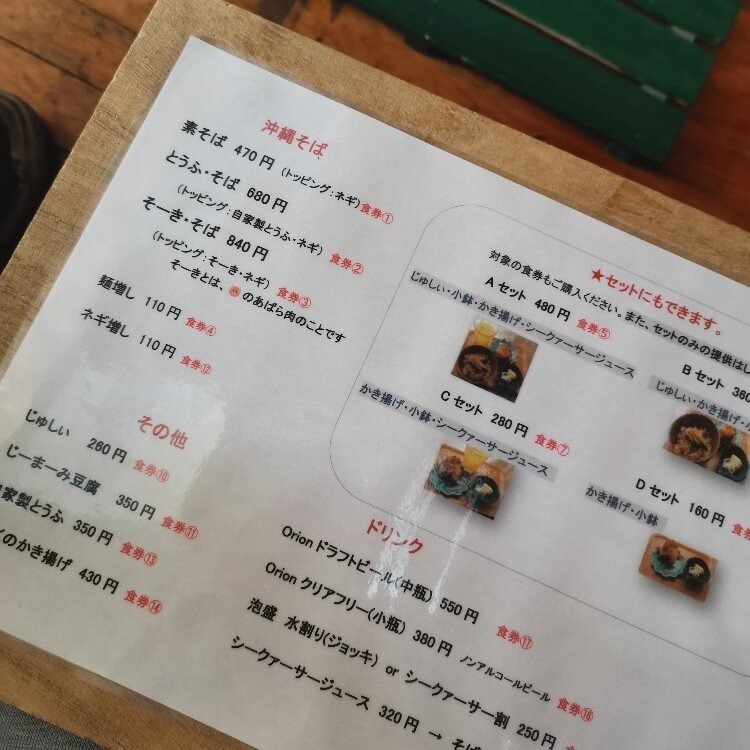 沖縄そば
素そば 470円 (トッピング:ネギ)食券①
とうふ・そば 680円
(トッピング:自家製とうふ・ネギ) 食券②
そーき・そば 840円
(トッピング:そーき・ネギ) 食券③
そーきとは、のあばら肉のことです
麺増し 110円 食券④
ネギ増し 110円 食券⑫
その他
じゅしい 260円 食券⑩
じーまーみ豆腐 350円 食券⑪
家製とうふ 350円 食券⑬
のかき揚げ 430円 食券⑭
★セットにもできます。
対象の食券もご購入ください。また、セットのみの提供はし
Aセット 480円 食券⑤
じゅしい・小鉢・かき揚げ・シークァーサージュース
Bセット 360
じゅしい・かき揚げ・小
Cセット 280円 食券⑦
かき揚げ・小鉢・シークァーサージュース
Dセット 160円 食券
かき揚げ・小鉢
ドリンク
Orionドラフトビール(中瓶) 550円 食券⑰
Orionクリアフリー(小瓶) 380円 ノンアルコールビール 食券⑱
泡盛 水割り(ジョッキ) or シークァーサー割 250円
シークァーサージュース 320円 → そば